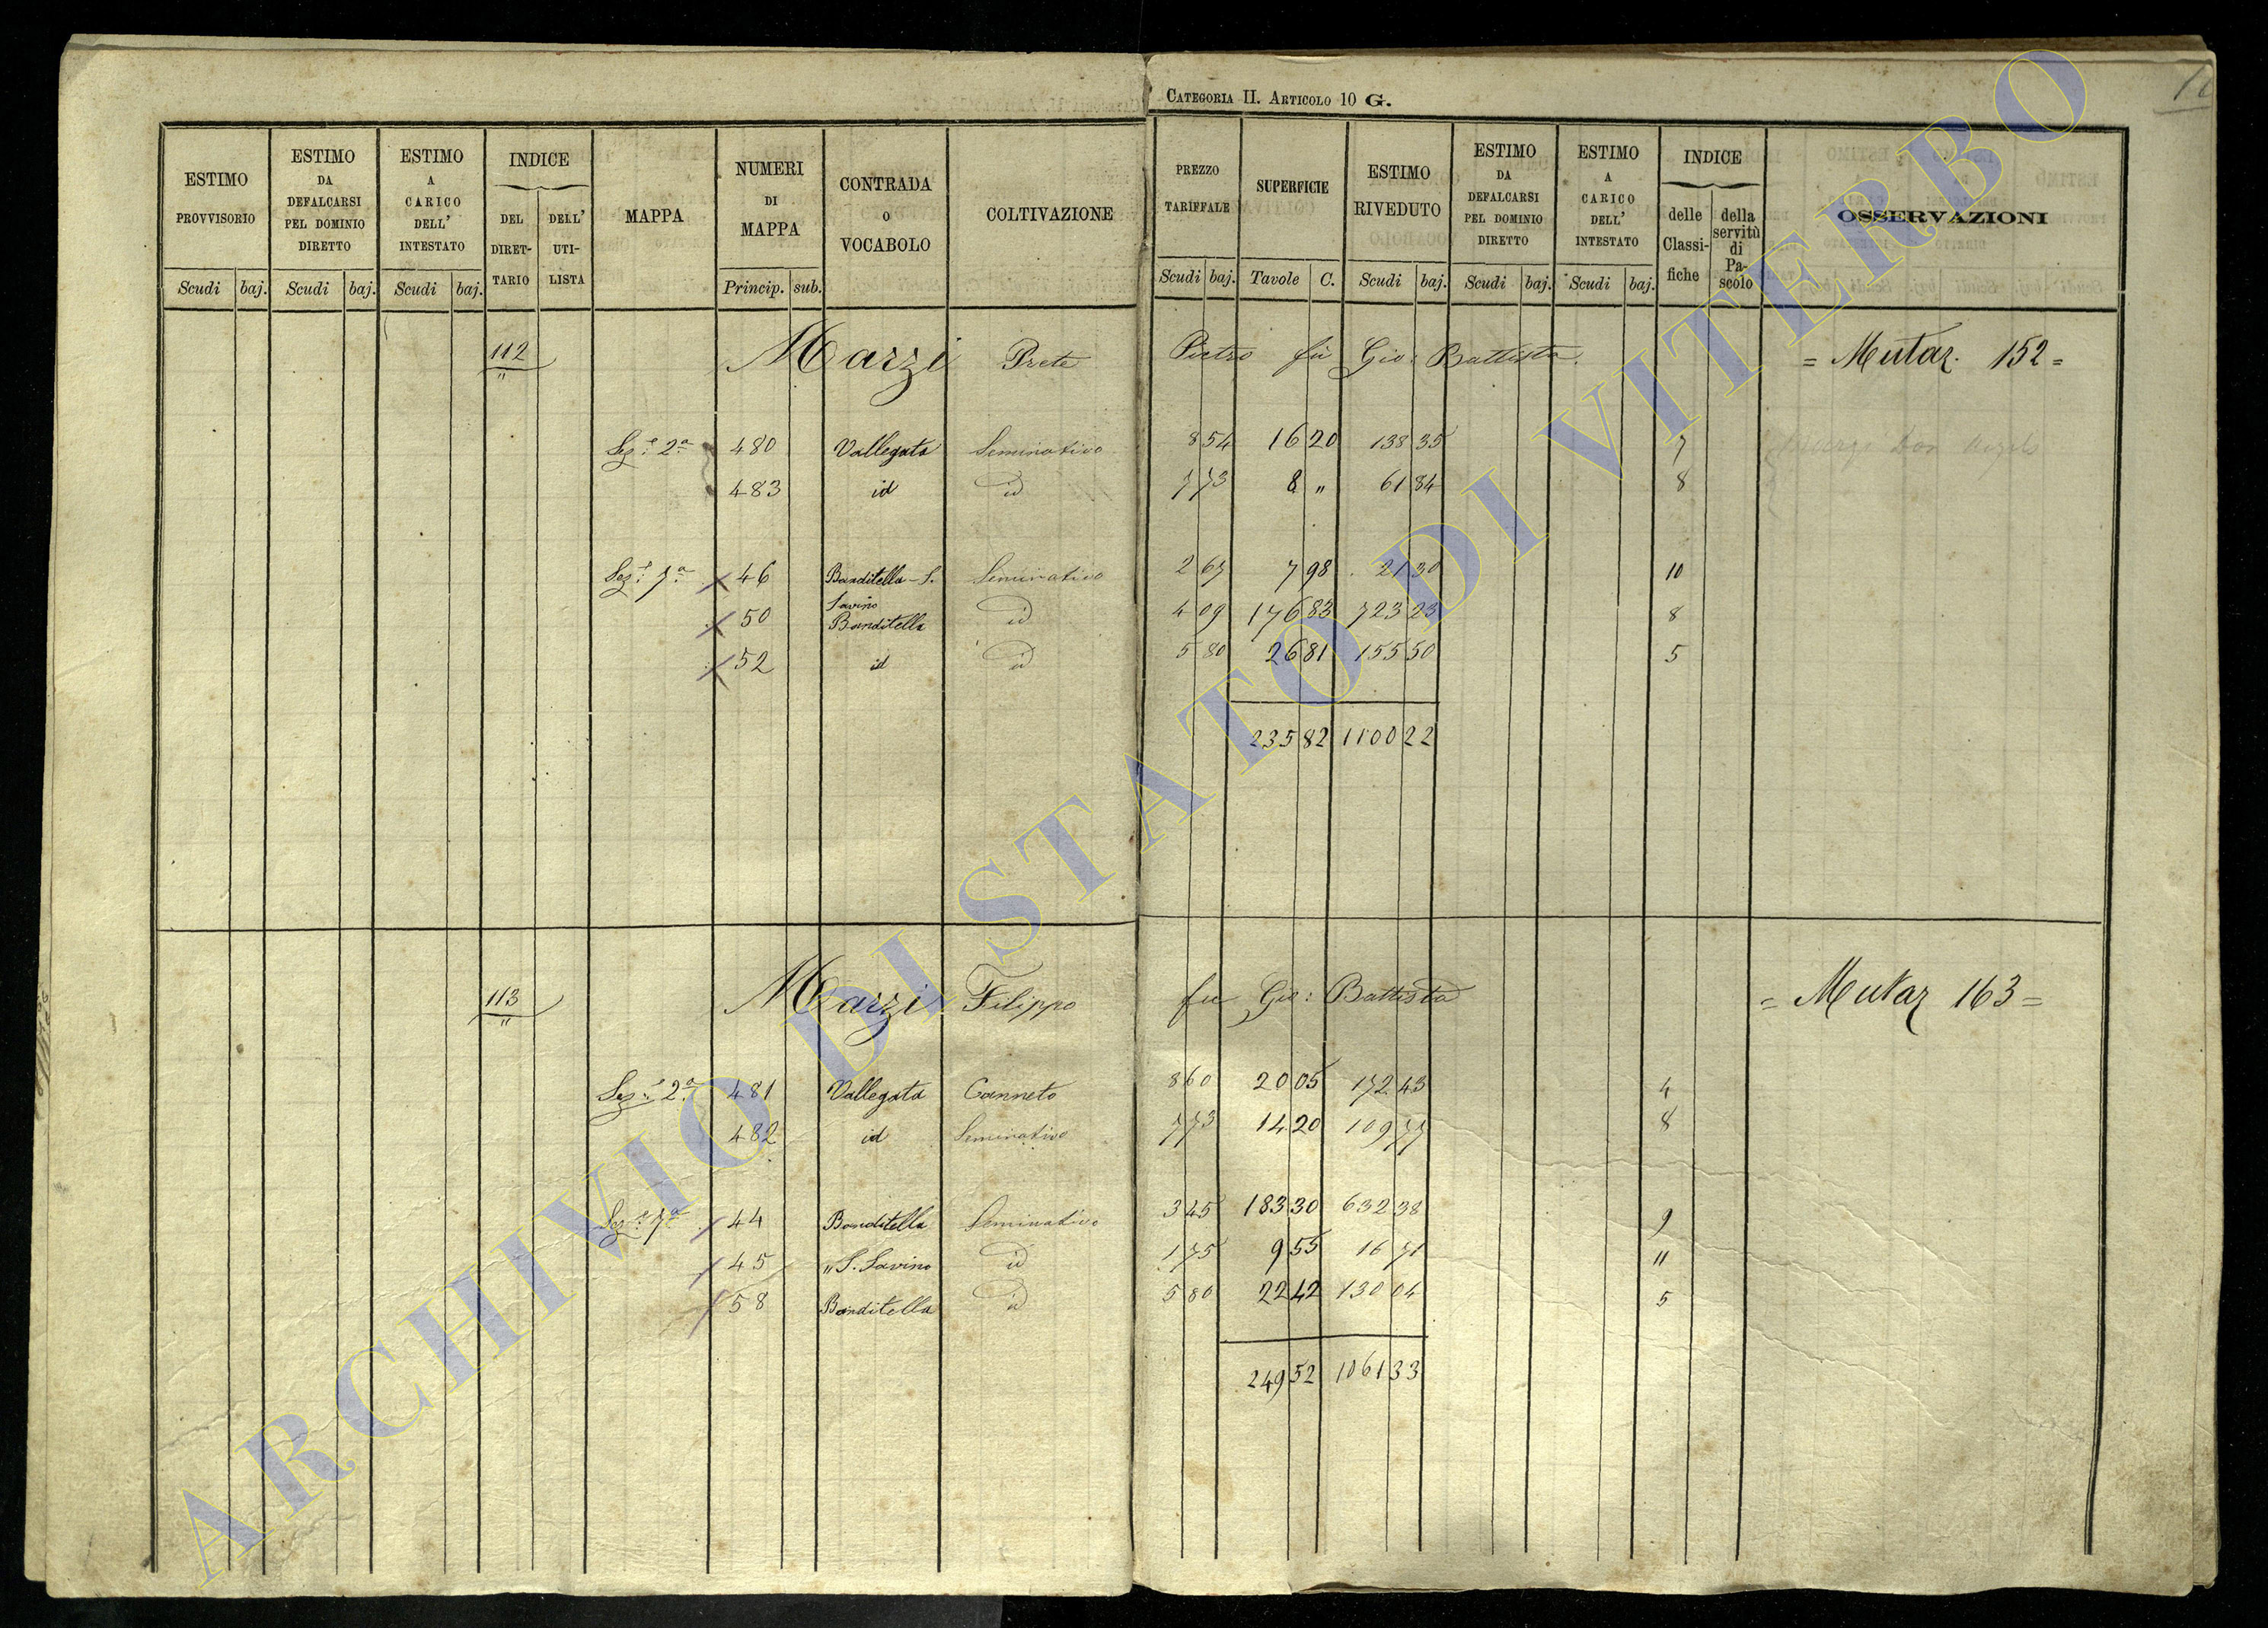 CATEGORIA II. ARTICOLO 10 G.
ESTIMO PROVVISORIO Scudi baj.
ESTIMO DA DEFALCARSI PEL DOMINIO DIRETTO Scudi baj.
ESTIMO A CARICO DELL' INTESTATO Scudi baj.
INDICE DEL DIRET-TARIO DELL' UTI-LISTA
MAPPA
NUMERI DI MAPPA Princip. sub.
CONTRADA O VOCABOLO
COLTIVAZIONE
PREZZO TARIFFALE Scudi baj.
SUPERFICIE Tavole C.
ESTIMO RIVEDUTO Scudi baj.
ESTIMO DA DEFALCARSI PEL DOMINIO DIRETTO Scudi baj.
ESTIMO A CARICO DELL' INTESTATO Scudi baj.
INDICE delle Classi-fiche della servitù di Pa-scolo
OSSERVAZIONI
112 " Marzi Prete Pietro fù Gio: Battista. = Mutaz. 152 =
Sez.e 2a 480 Vallegata Seminativo 8 54 16 20 138 35 7
483 id id 7 73 8 " 61 84 8
Sez.e 7a 46 Banditella - S. Savino Seminativo 2 67 7 98 21 30 10
50 Banditella id 4 09 176 83 723 23 8
52 id id 5 80 26 81 155 50 5
235 82 1100 22
113 " Marzi Filippo fu Gio: Battista = Mutaz 163 =
Sez.e 2a 481 Vallegata Canneto 8 60 20 05 172 43 4
482 id Seminativo 7 73 14 20 109 77 8
Sez.e 7a 44 Banditella Seminativo 3 45 183 30 632 38 9
45 " S. Savino id 1 75 9 55 16 71 11
58 Banditella id 5 80 22 42 130 04 5
249 52 1061 33
ARCHIVIO DI STATO DI VITERBO